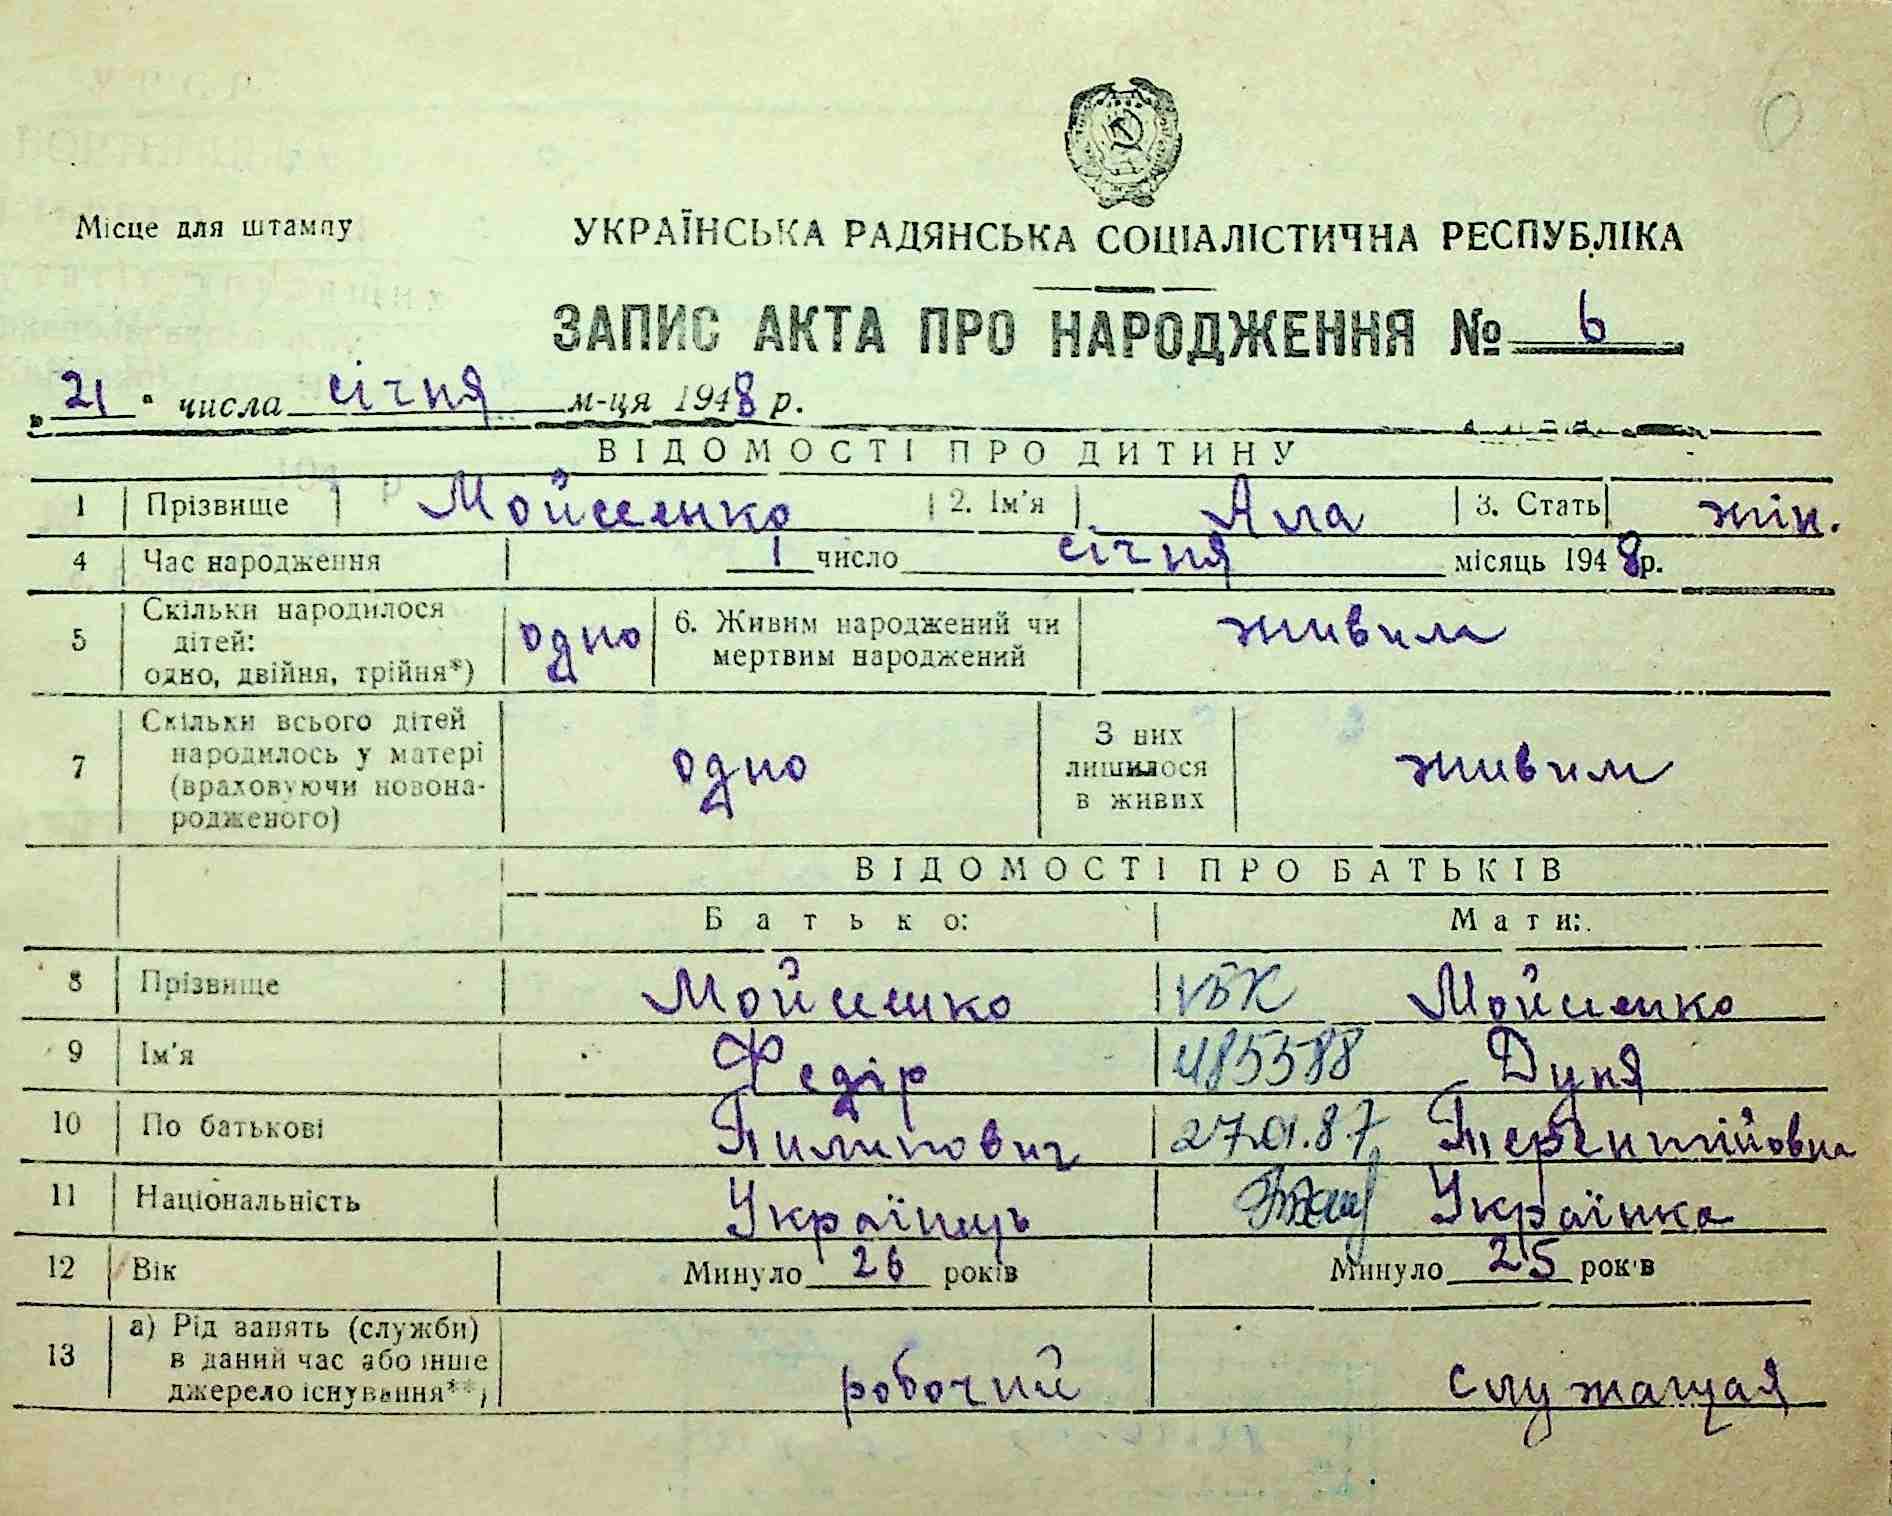 Місце для штампу
УКРАЇНСЬКА РАДЯНСЬКА СОЦІАЛІСТИЧНА РЕСПУБЛІКА
ЗАПИС АКТА ПРО НАРОДЖЕННЯ № 6
„21" числа січня м-ця 1948 р.
ВІДОМОСТІ ПРО ДИТИНУ
1 Прізвище Мойсеенко 2. Ім'я Ала 3. Стать жін.
4 Час народження 1 число січня місяць 1948р.
5 Скільки народилося дітей: одно, двійня, трійня*) одно 6. Живим народжений чи мертвим народжений живила
7 Скільки всього дітей народилось у матері (враховуючи новонародженого) одно З них лишилося в живих живим
ВІДОМОСТІ ПРО БАТЬКІВ
Батько: Мати:
8 Прізвище Мойсеенко VБК Мойсеенко
9 Ім'я Федір 485588 Дуня
10 По батькові Пилипович 27.01.87 Терентійовна
11 Національність Українець Українка
12 Вік Минуло 26 років Минуло 25 років
13 а) Рід занять (служби) в даний час або інше джерело існування**) робочий служащая